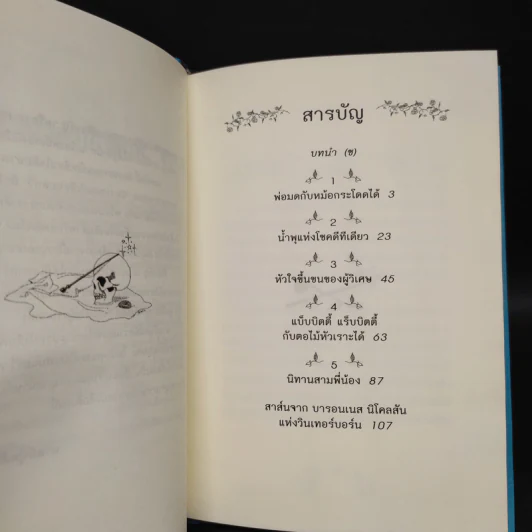 สารบัญ
บทนำ (ซ)
1
พ่อมดกับหม้อกระโดดได้ 3
2
น้ำพุแห่งโชคดีทีเดียว 23
3
หัวใจขึ้นขนของผู้วิเศษ 45
4
แบ็บบิตตี้ แร็บบิตตี้
กับตอไม้หัวเราะได้ 63
5
นิทานสามพี่น้อง 87
สาส์นจาก บารอนเนส นิโคลสัน
แห่งวินเทอร์บอร์น 107